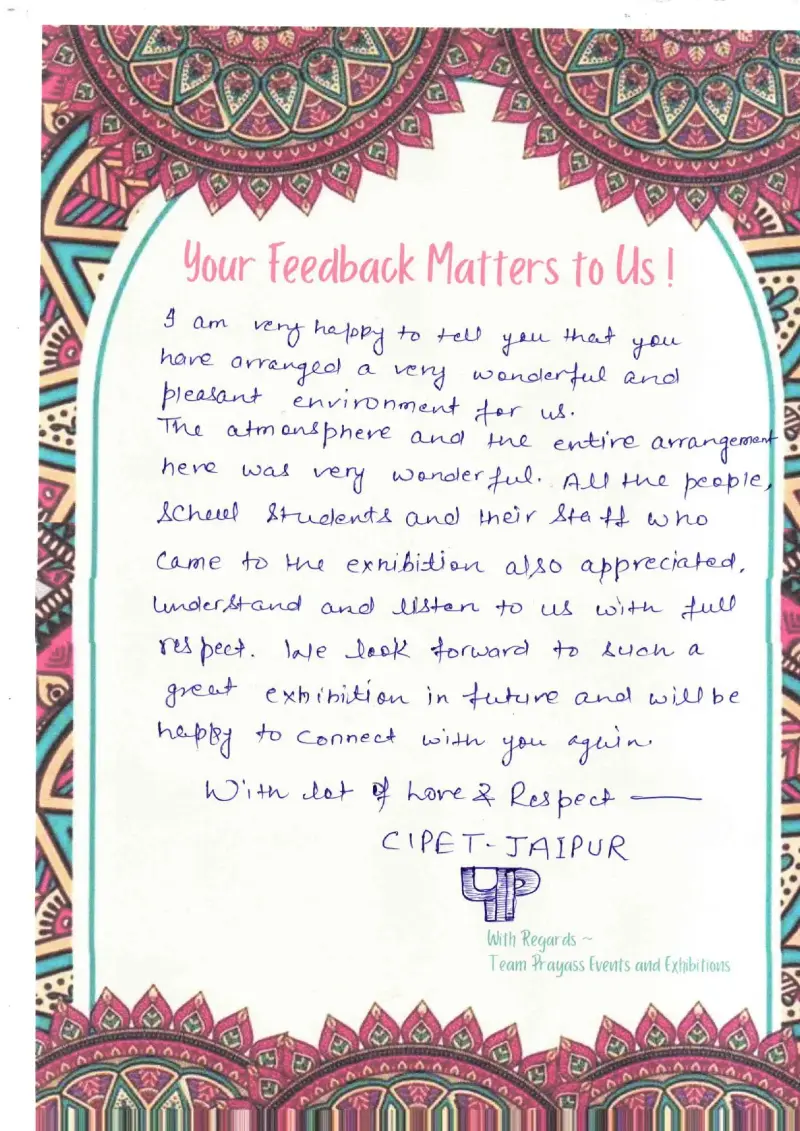 Your Feedback Matters to Us !
I am very happy to tell you that you
have arranged a very wonderful and
pleasant environment for us.
The atmonsphere and the entire arrangement
here was very wonderful. All the people,
School students and their staff who
came to the exhibition also appreciated,
understand and listen to us with full
respect. We look forward to such a
great exhibition in future and will be
happy to connect with you again.
With lot of Love & Respect —
CIPET-JAIPUR
YP
With Regards ~
Team Prayass Events and Exhibitions